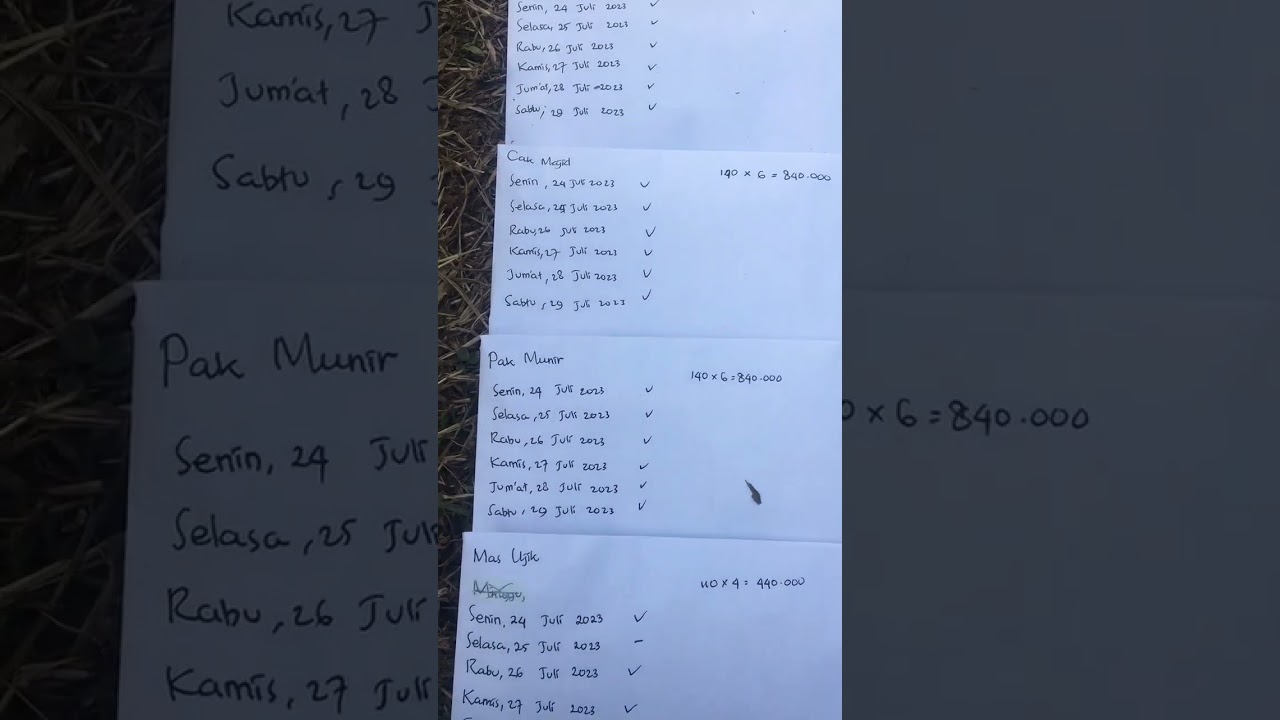 Senin, 24 Juli 2023 ✓
Selasa, 25 Juli 2023 ✓
Rabu, 26 Juli 2023 ✓
Kamis, 27 Juli 2023 ✓
Jum'at, 28 Juli 2023 ✓
Sabtu, 29 Juli 2023 ✓
Cak Majid
140 x 6 = 840.000
Senin, 24 Juli 2023 ✓
Selasa, 25 Juli 2023 ✓
Rabu, 26 Juli 2023 ✓
Kamis, 27 Juli 2023 ✓
Jum'at, 28 Juli 2023 ✓
Sabtu, 29 Juli 2023 ✓
Pak Munir
140 x 6 = 840.000
Senin, 24 Juli 2023 ✓
Selasa, 25 Juli 2023 ✓
Rabu, 26 Juli 2023 ✓
Kamis, 27 Juli 2023 ✓
Jum'at, 28 Juli 2023 ✓
Sabtu, 29 Juli 2023 ✓
Mas Ujik
110 x 4 = 440.000
Senin, 24 Juli 2023 ✓
Selasa, 25 Juli 2023 -
Rabu, 26 Juli 2023 ✓
Kamis, 27 Juli 2023 ✓